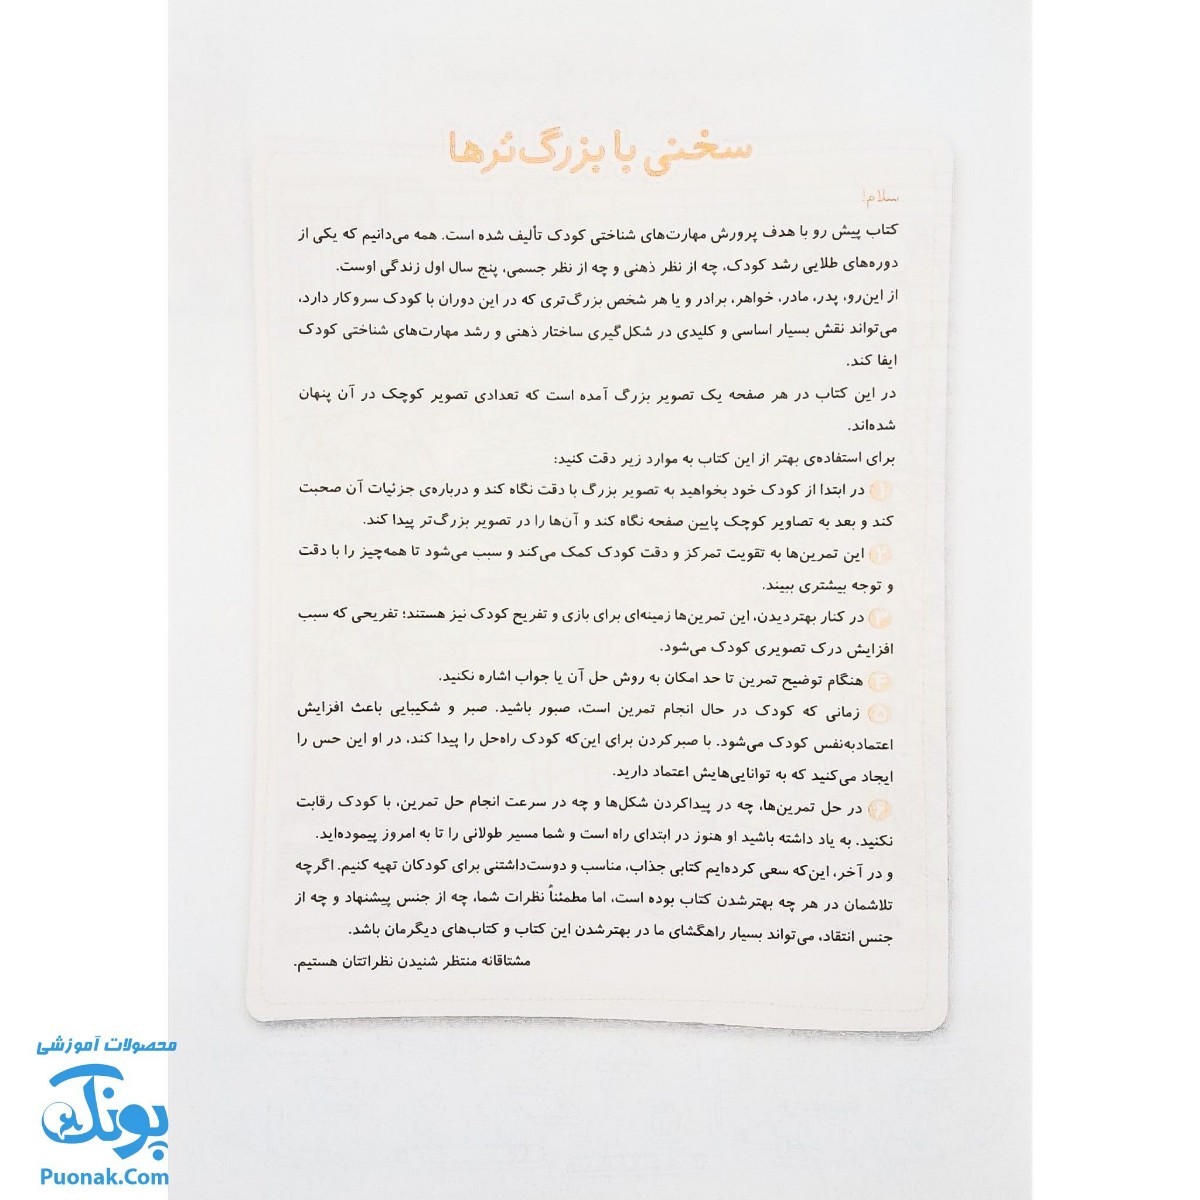 سخنی با بزرگ‌ترها
سلام!
کتاب پیش رو با هدف پرورش مهارت‌های شناختی کودک تألیف شده است. همه می‌دانیم که یکی از
دوره‌های طلایی رشد کودک، چه از نظر ذهنی و چه از نظر جسمی، پنج سال اول زندگی اوست.
از این‌رو، پدر، مادر، خواهر، برادر و یا هر شخص بزرگ‌تری که در این دوران با کودک سروکار دارد،
می‌تواند نقش بسیار اساسی و کلیدی در شکل‌گیری ساختار ذهنی و رشد مهارت‌های شناختی کودک
ایفا کند.
در این کتاب در هر صفحه یک تصویر بزرگ آمده است که تعدادی تصویر کوچک در آن پنهان
شده‌اند.
برای استفاده‌ی بهتر از این کتاب به موارد زیر دقت کنید:
۱ در ابتدا از کودک خود بخواهید به تصویر بزرگ با دقت نگاه کند و درباره‌ی جزئیات آن صحبت
کند و بعد به تصاویر کوچک پایین صفحه نگاه کند و آن‌ها را در تصویر بزرگ‌تر پیدا کند.
۲ این تمرین‌ها به تقویت تمرکز و دقت کودک کمک می‌کند و سبب می‌شود تا همه‌چیز را با دقت
و توجه بیشتری ببیند.
۳ در کنار بهتردیدن، این تمرین‌ها زمینه‌ای برای بازی و تفریح کودک نیز هستند؛ تفریحی که سبب
افزایش درک تصویری کودک می‌شود.
۴ هنگام توضیح تمرین تا حد امکان به روش حل آن یا جواب اشاره نکنید.
۵ زمانی که کودک در حال انجام تمرین است، صبور باشید. صبر و شکیبایی باعث افزایش
اعتمادبه‌نفس کودک می‌شود. با صبرکردن برای این‌که کودک راه‌حل را پیدا کند، در او این حس را
ایجاد می‌کنید که به توانایی‌هایش اعتماد دارید.
۶ در حل تمرین‌ها، چه در پیداکردن شکل‌ها و چه در سرعت انجام حل تمرین، با کودک رقابت
نکنید. به یاد داشته باشید او هنوز در ابتدای راه است و شما مسیر طولانی را تا به امروز پیموده‌اید.
و در آخر، این‌که سعی کرده‌ایم کتابی جذاب، مناسب و دوست‌داشتنی برای کودکان تهیه کنیم. اگرچه
تلاشمان در هر چه بهترشدن کتاب بوده است، اما مطمئناً نظرات شما، چه از جنس پیشنهاد و چه از
جنس انتقاد، می‌تواند بسیار راهگشای ما در بهترشدن این کتاب و کتاب‌های دیگرمان باشد.
مشتاقانه منتظر شنیدن نظراتتان هستیم.
محصولات آموزشی
پونک
Puonak.Com